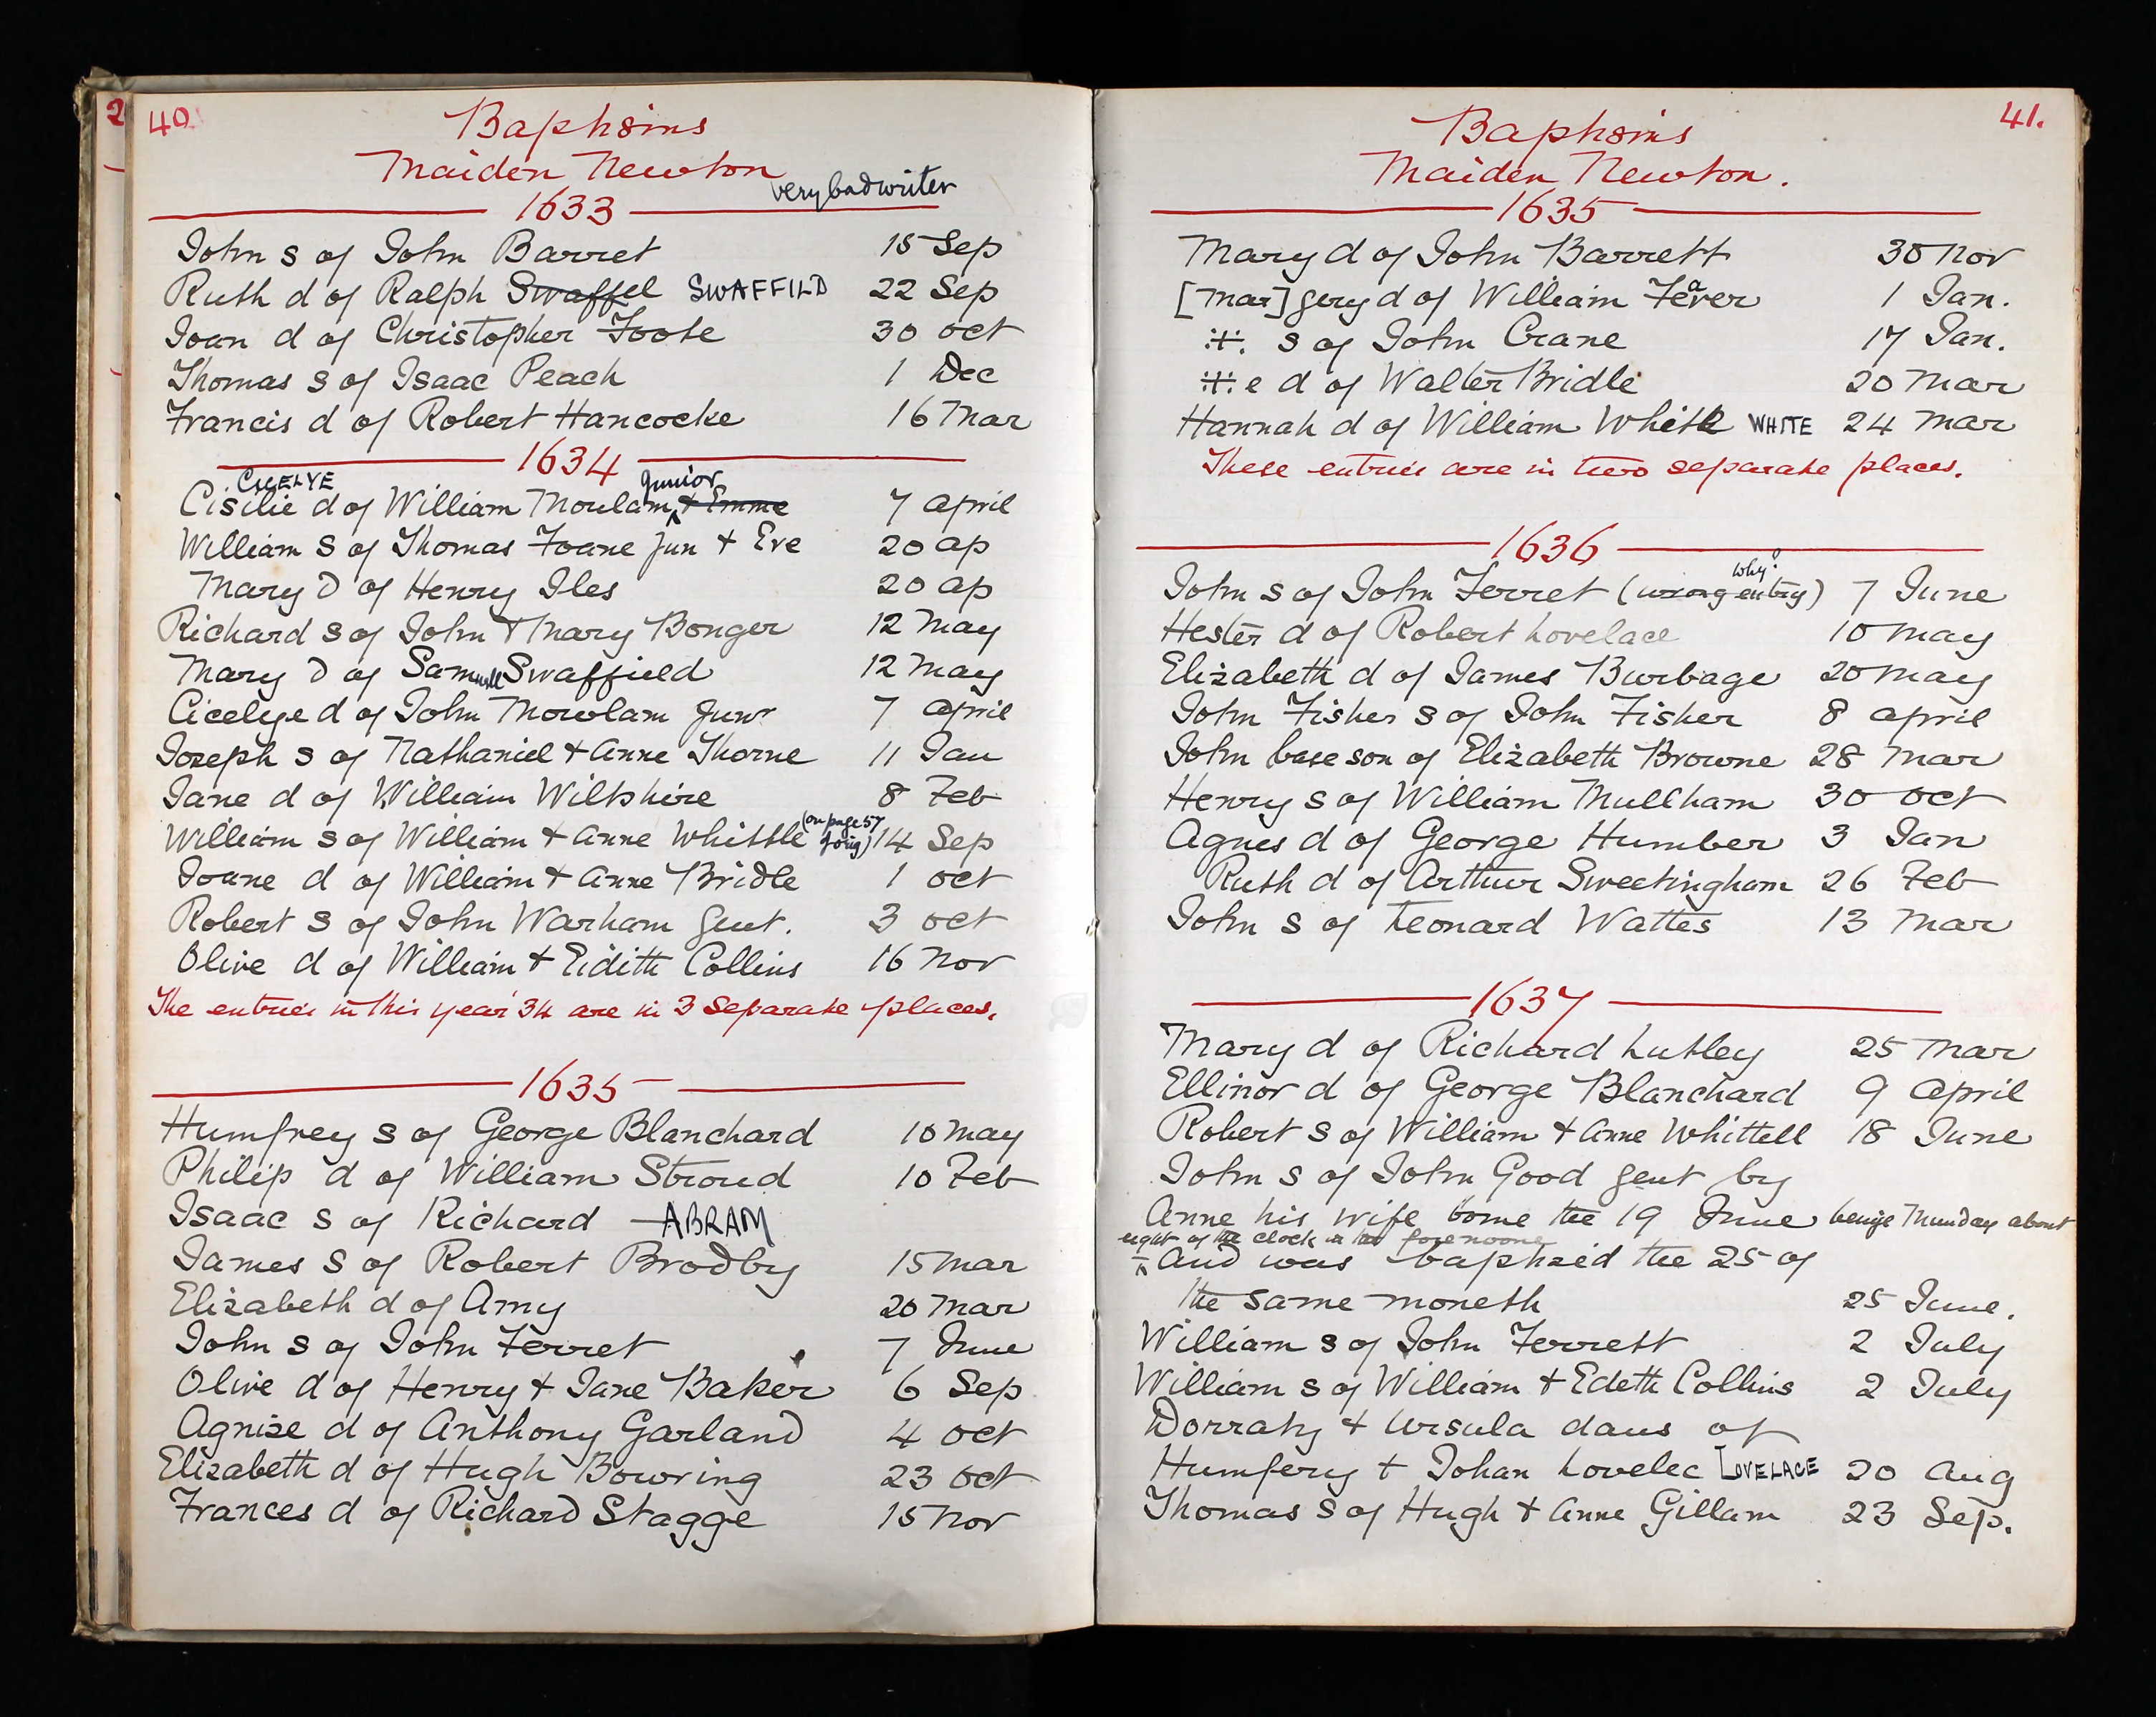 2
40
Baptisms
Maiden Newton
very bad writer
1633
John s of John Barret 15 Sep
Ruth d of Ralph Swaffel SWAFFILD 22 Sep
Joan d of Christopher Foote 30 Oct
Thomas s of Isaac Peach 1 Dec
Francis d of Robert Hancocke 16 Mar
1634
CICELYE junior
Cisilie d of William Moulam + Emme 7 April
William s of Thomas Foane Jun + Eve 20 Ap
Mary d of Henry Iles 20 Ap
Richard s of John + Mary Bonger 12 May
Mary d of Samuell Swaffield 12 May
Cicelye d of John Mowlam Junr 7 April
Joseph s of Nathaniel + Anne Thorne 11 Jan
Jane d of William Wiltshire 8 Feb
William s of William + Anne Whittle (on page 57 of orig) 14 Sep
Joane d of William + Anne Bridle 1 Oct
Robert s of John Warham Gent. 3 Oct
Olive d of William + Eidith Collins 16 Nov
The entries in this year 34 are in 3 separate places.
1635
Humfrey s of George Blanchard 10 May
Philip d of William Stroud 10 Feb
Isaac s of Richard ABRAM
James s of Robert Brodby 15 Mar
Elizabeth d of Amy 20 Mar
John s of John Ferret 7 June
Olive d of Henry + Jane Baker 6 Sep
Agnise d of Anthony Garland 4 Oct
Elizabeth d of Hugh Bowring 23 Oct
Frances d of Richard Stagge 15 Nov
41.
Baptisms
Maiden Newton.
1635
Mary d of John Barrett 30 Nov
[Mar]gery d of William Fever 1 Jan.
s of John Crane 17 Jan.
e d of Walter Bridle 20 Mar
Hannah d of William White WHITE 24 Mar
These entries are in two separate places.
1636
why?
John s of John Ferret (wrong entry) 7 June
Hester d of Robert Lovelace 10 May
Elizabeth d of James Burbage 20 May
John Fisher s of John Fisher 8 April
John base son of Elizabeth Browne 28 Mar
Henry s of William Mullham 30 Oct
Agnes d of George Humber 3 Jan
Ruth d of Arthur Sweetingham 26 Feb
John s of Leonard Wattes 13 Mar
1637
Mary d of Richard Lutley 25 Mar
Ellinor d of George Blanchard 9 April
Robert s of William + Anne Whittell 18 June
John s of John Good gent by
Anne his wife borne the 19 June beinge Munday about
eight of the clock in the forenoone
And was baptized the 25 of
the same moneth 25 June.
William s of John Ferrett 2 July
William s of William + Edeth Collins 2 July
Dorraty + Ursula daus of
Humfery + Johan Lovelec LOVELACE 20 Aug
Thomas s of Hugh + Anne Gillam 23 Sep.